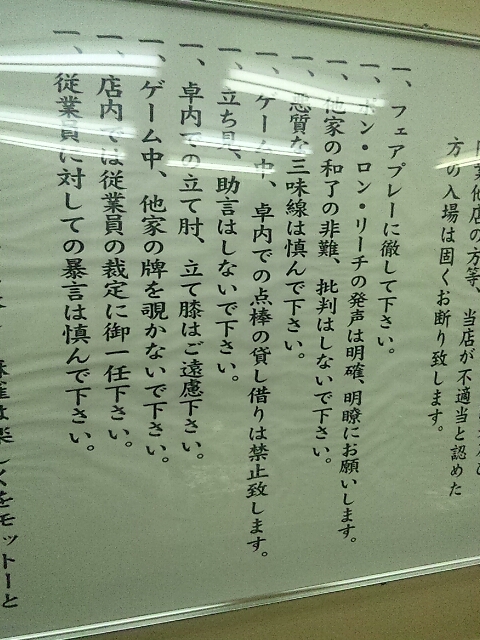 同業他店の方等、当店が不適当と認めた
方の入場は固くお断り致します。
一、フェアプレーに徹して下さい。
一、ポン・ロン・リーチの発声は明確、明瞭にお願いします。
一、他家の和了の非難、批判はしないで下さい。
一、悪質な三味線は慎んで下さい。
一、ゲーム中、卓内での点棒の貸し借りは禁止致します。
一、立ち見、助言はしないで下さい。
一、卓内での立て肘、立て膝はご遠慮下さい。
一、ゲーム中、他家の牌を覗かないで下さい。
一、店内では従業員の裁定に御一任下さい。
一、従業員に対しての暴言は慎んで下さい。
麻雀は楽しくをモットーと